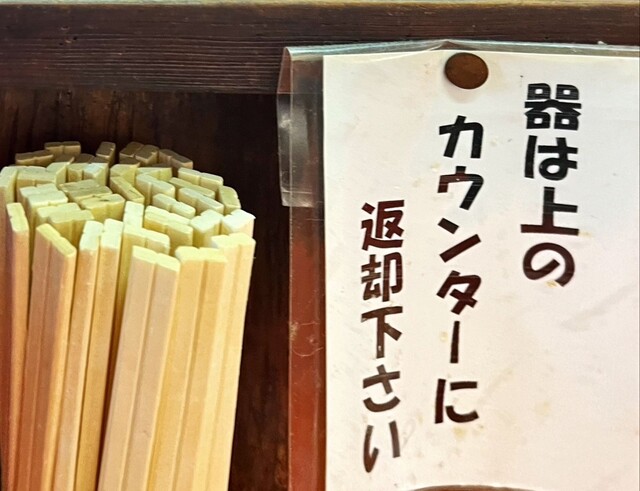 器は上の
カウンターに
返却下さい